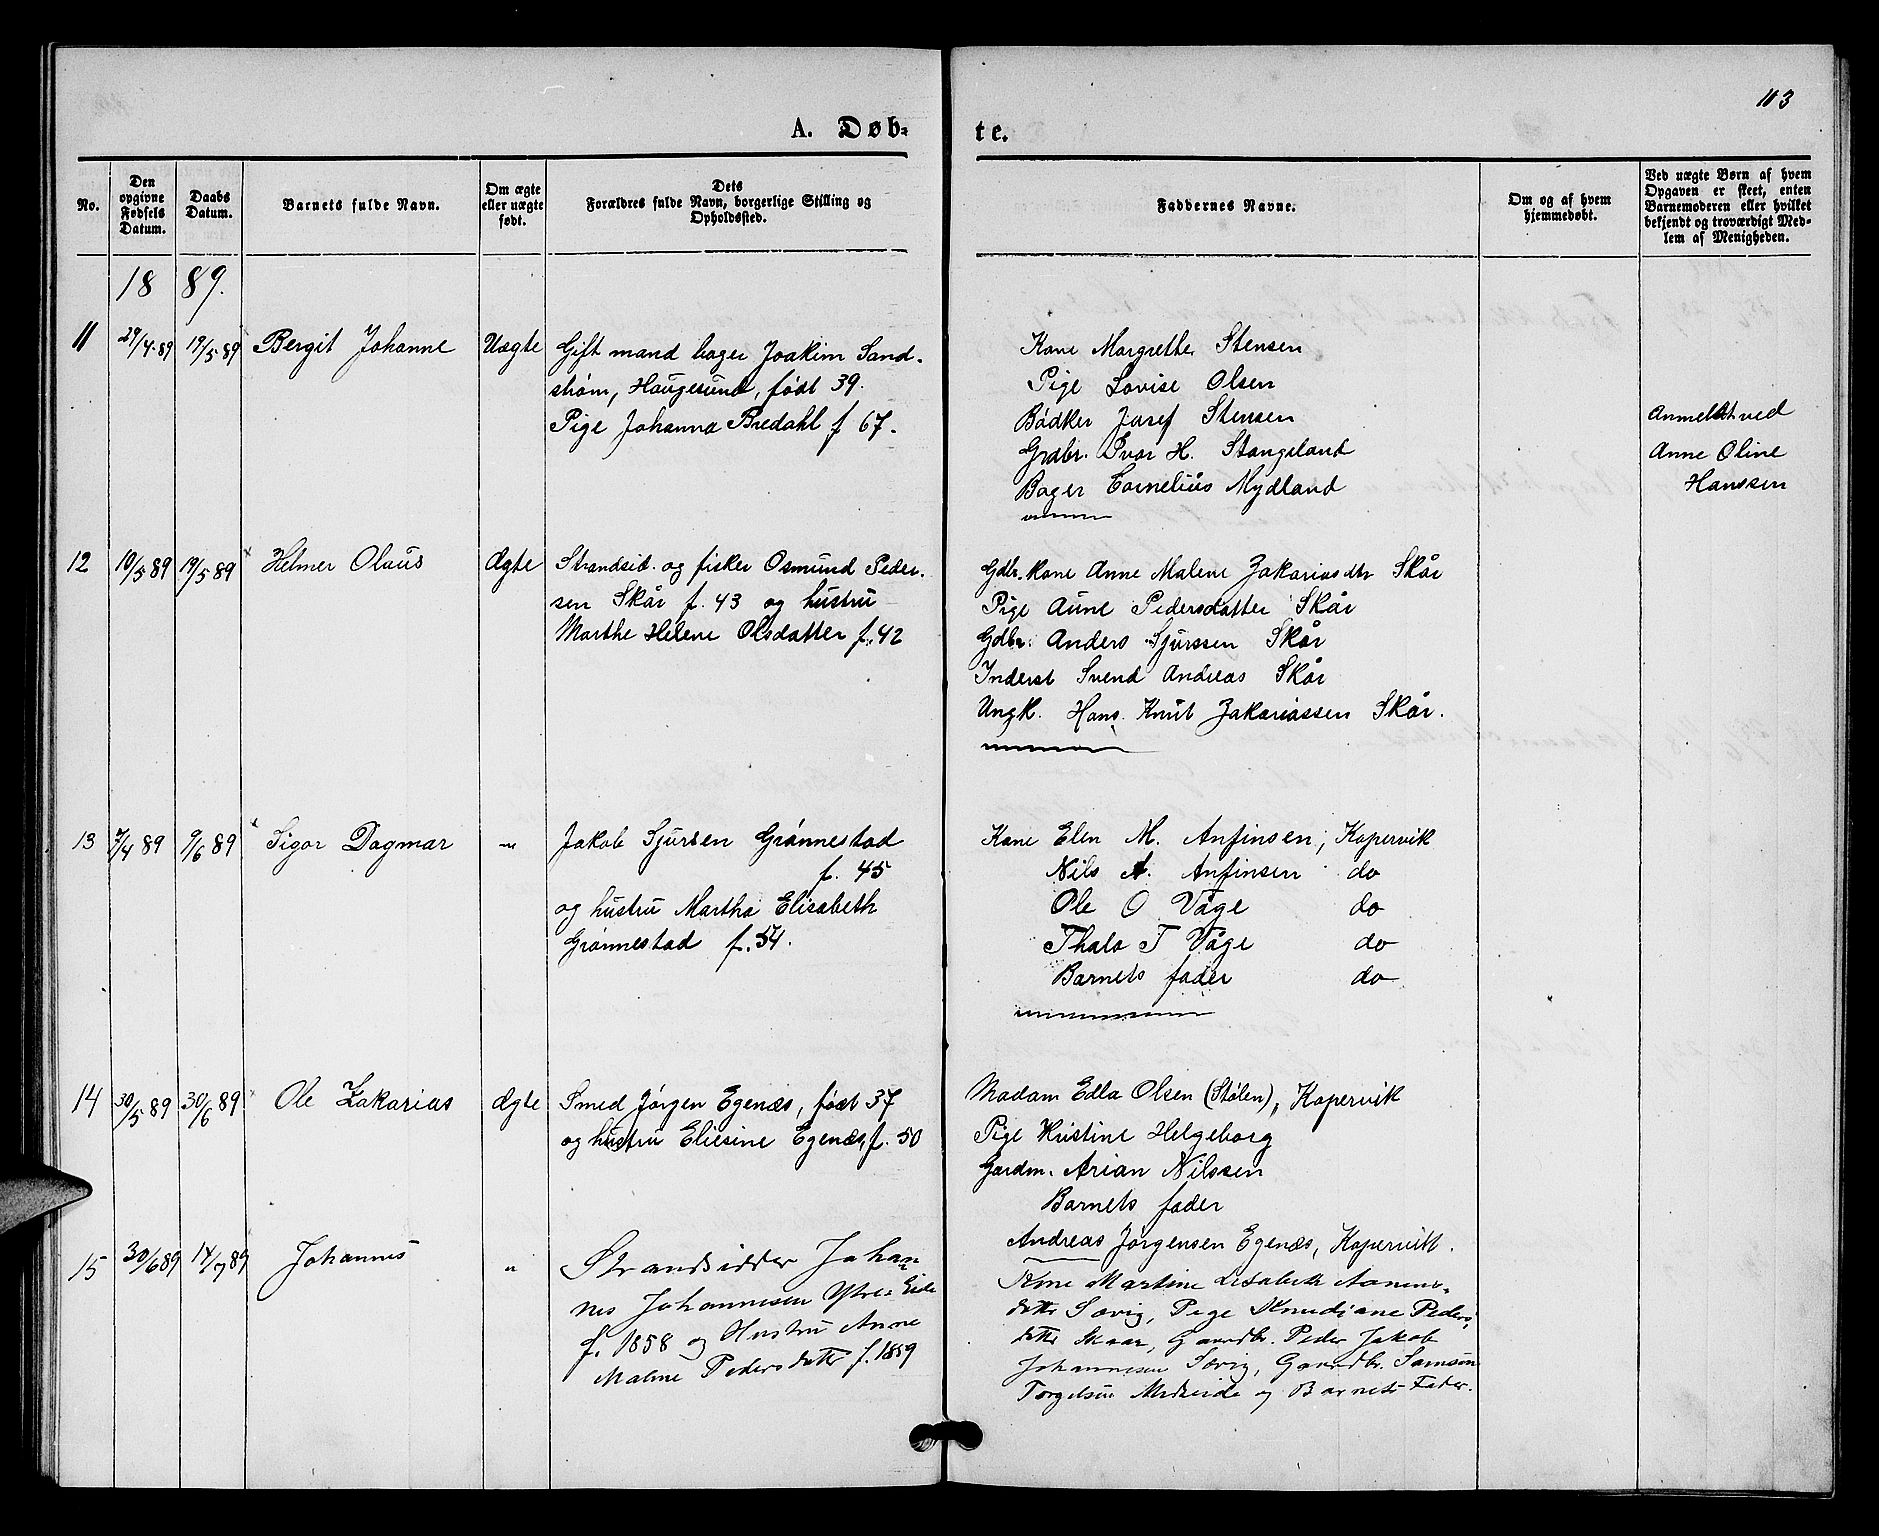 113
A. Døb-
te.
No.
Den opgivne Fødsels Datum.
Daabs Datum.
Barnets fulde Navn.
Om ægte eller uægte født.
Dets Forældres fulde Navn, borgerlige Stilling og Opholdssted.
Faddernes Navne.
Om og af hvem hjemmedøbt.
Ved uægte Børn af hvem Opgaven er skeet, enten Barnemoderen eller hvilket bekjendt og troværdigt Medlem af Menigheden.
1889.
11 29/4 89 19/5 89 Bergit Johanne Uægte
Gift mand bager Joakim Sand-
strøm, Haugesund, født 39.
Pige Johanna Bredahl f 67.
Kone Margrethe Stensen
Pige Lovise Olsen
Bødker Josef Stensen
Grdbr. Ivar H. Stangeland
Bager Cornelius Mydland
Anmeldt ved
Anne Oline
Hanssen
12 10/5 89 19/5 89 Helmer Olaus Ægte
Strandsid. og fisker Osmund Peder-
sen Skår f. 43 og hustru
Marthe Helene Olsdatter f. 42
Gdbr. kone Anne Malene Zakariasdtr Skår
Pige Anne Pedersdatter Skår
Gdbr. Anders Sjurssen Skår
Inderst Svend Andreas Skår
Ungk. Hans Knut Zakariassen Skår.
13 7/4 89 9/6 89 Sigor Dagmar "
Jakob Sjursen Grønnestad
f. 45
og hustru Martha Elisabeth
Grønnestad f. 54.
Kone Elen M. Anfinsen, Kopervik
Nils A. Anfinsen do
Ole O Våge do
Thala T Våge do
Barnets fader do
14 30/5 89 30/6 89 Ole Zakarias Ægte
Smed Jørgen Egenæs, født 37
og hustru Eliesine Egenæs, f. 50
Madam Edla Olsen (Stølen), Kopervik
Pige Kristine Helgeborg
Gardm. Arian Nilssen
Barnets fader
Andreas Jørgensen Egenæs, Kopervik.
15 30/6 89 14/7 89 Johannes "
Strandsidder Johan-
nes Johannesen Ytre Eide
f. 1858 og Hustru Anne
Malene Pedersdatter f. 1859
Kone Martine Lisabeth
datter Sævig, Pige Knudiane Peders-
datter Skaar, Gaardbr. Peder Jakob
Johannesen Sævig, Gaardbr. Samson
Torgelsen Medeide og Barnets Fader.